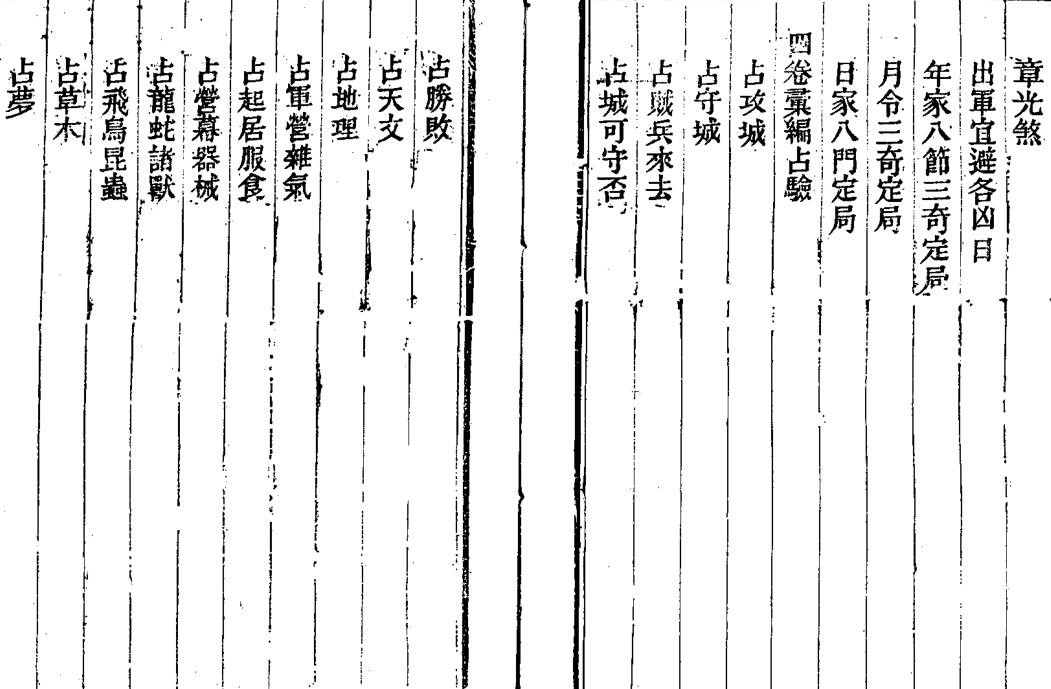 章光煞
出軍宜避各凶日
年家八節三奇定局
月令三奇定局
日家八門定局
四卷彙編占驗
占攻城
占守城
占賊兵來去
占城可守否
占勝敗
占天文
占地理
占軍營雜氣
占起居服食
占營幕器械
占龍蛇諸獸
占飛鳥昆蟲
占草木
占夢